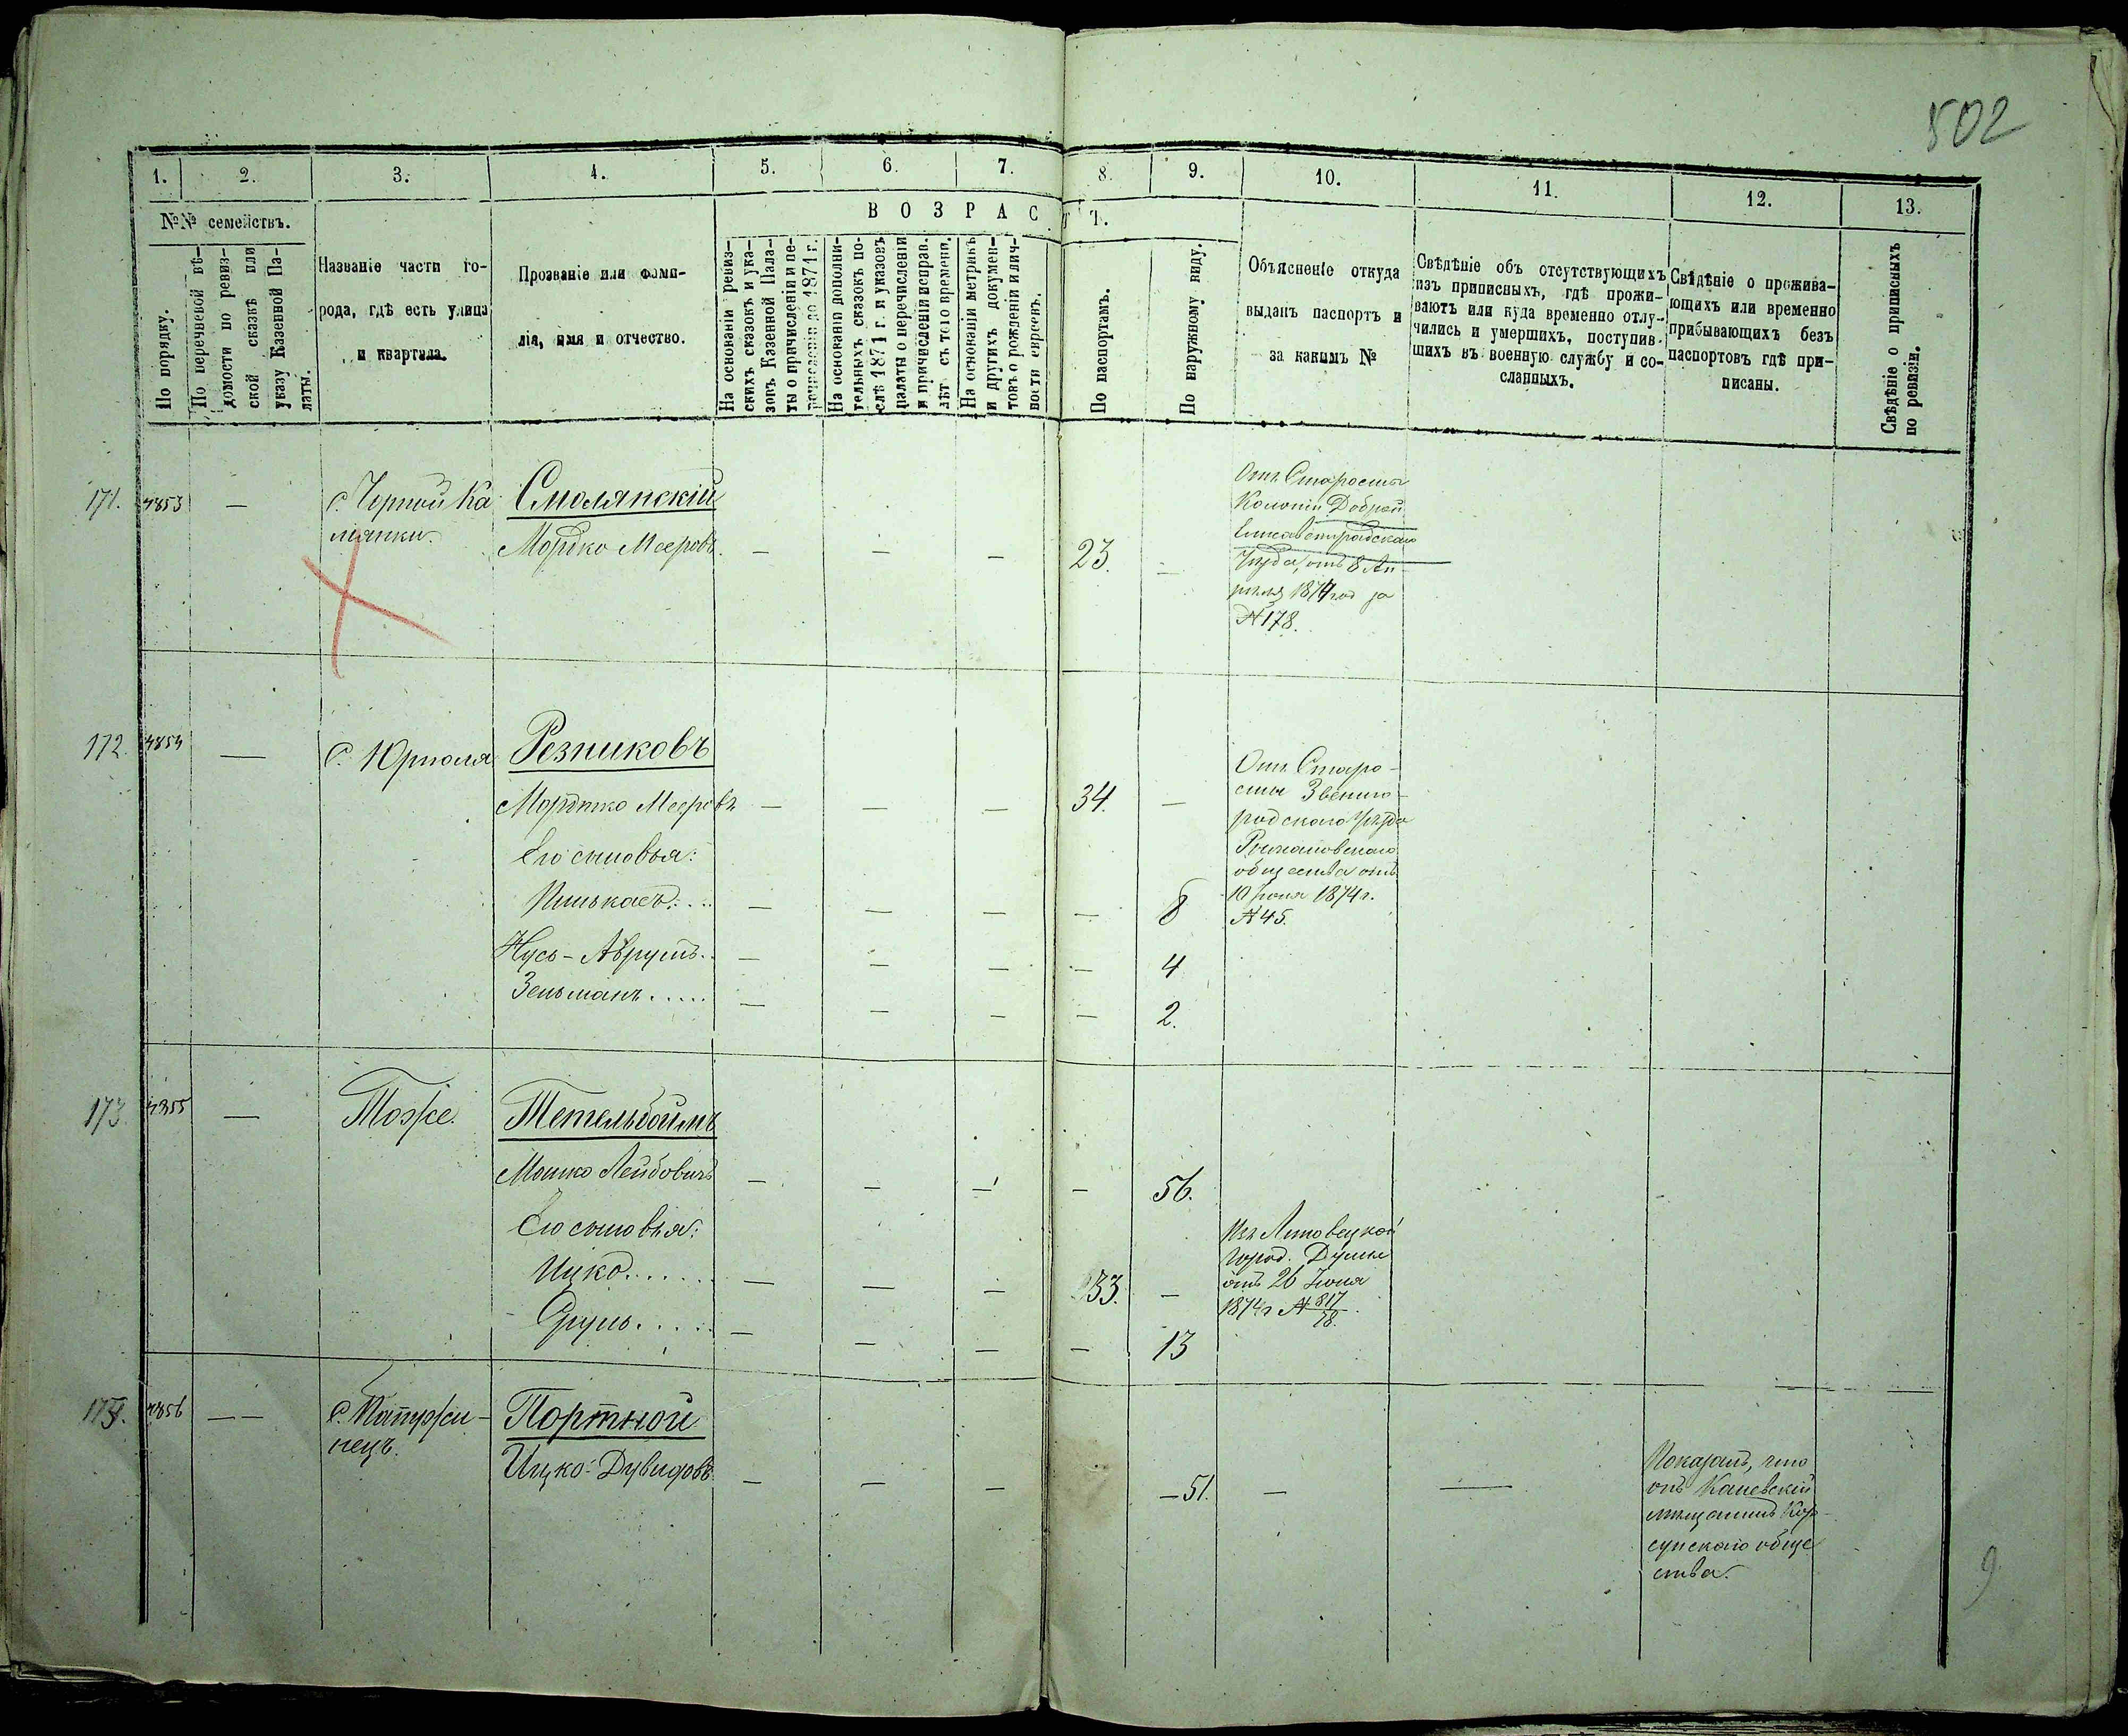 502
1. 2. 3. 4. 5. 6. 7. 8. 9. 10. 11. 12. 13.
№№ семействъ.
По порядку.
По перечневой вѣ-
домости по ревиз-
ской сказкѣ или
указу Казенной Па-
латы.
Названіе части го-
рода, гдѣ есть улица
и квартала.
Прозваніе или фами-
лія, имя и отчество.
ВОЗРАСТЪ.
На основаніи ревиз-
скихъ сказокъ и ука-
зовъ Казенной Пала-
ты о причисленіи и пе-
речисленіи до 1871 г.
На основаніи дополни-
тельныхъ сказокъ по-
слѣ 1871 г. и указовъ
палаты о перечисленіи
и причисленіи исправ.
лѣт съ того времени.
На основаніи метрикъ
и другихъ докумен-
товъ о рожденіи и лич-
ности евреевъ.
По паспортамъ.
По наружному виду.
Объясненіе откуда
выданъ паспортъ и
за какимъ №
Свѣдѣніе объ отсутствующихъ
изъ приписныхъ, гдѣ прожи-
ваютъ или куда временно отлу-
чились и умершихъ, поступив-
шихъ въ военную службу и со-
сланныхъ.
Свѣдѣніе о прожива-
ющихъ или временно
прибывающихъ безъ
паспортовъ гдѣ при-
писаны.
Свѣдѣніе о приписныхъ
по ревизіи.
171. 4853 — с. Чорной Ка Смолянскій
мянки. Мошко Мееровъ. — — — 23. —
Отъ Старосты
Колоніи Доброй
Елисаветградскаго
Уѣзда, отъ 8 Ап
рѣля 1874 год за
№ 178.
172. 4854 — с. Юрполя Резниковъ
Мордко Мееровъ — — — 34. —
Его сыновья:
Пинькасъ — — — — 8
Нусь-Аврумъ — — — — 4
Зельманъ — — — — 2.
Отъ Старо-
сты Звениго-
родскаго уѣзда
общества отъ
10 Іюня 1874 г.
№ 45.
173 4855 — Тоже. Тетельбоймъ
Мошко Лейбовичъ — — — — 56.
Его сыновья:
Ицко — — — 33. —
Сруль — — — — 13
Изъ Липовецкой
Город. Думы
отъ 26 Іюня
1874 г № 817/78.
174. 4856 — — Портной
нецъ. Ицко Дувидовъ — — — — 51. — —
Показалъ, что
онъ Каневскій
мѣщанинъ Кор-
сунскаго обще
ства.
9